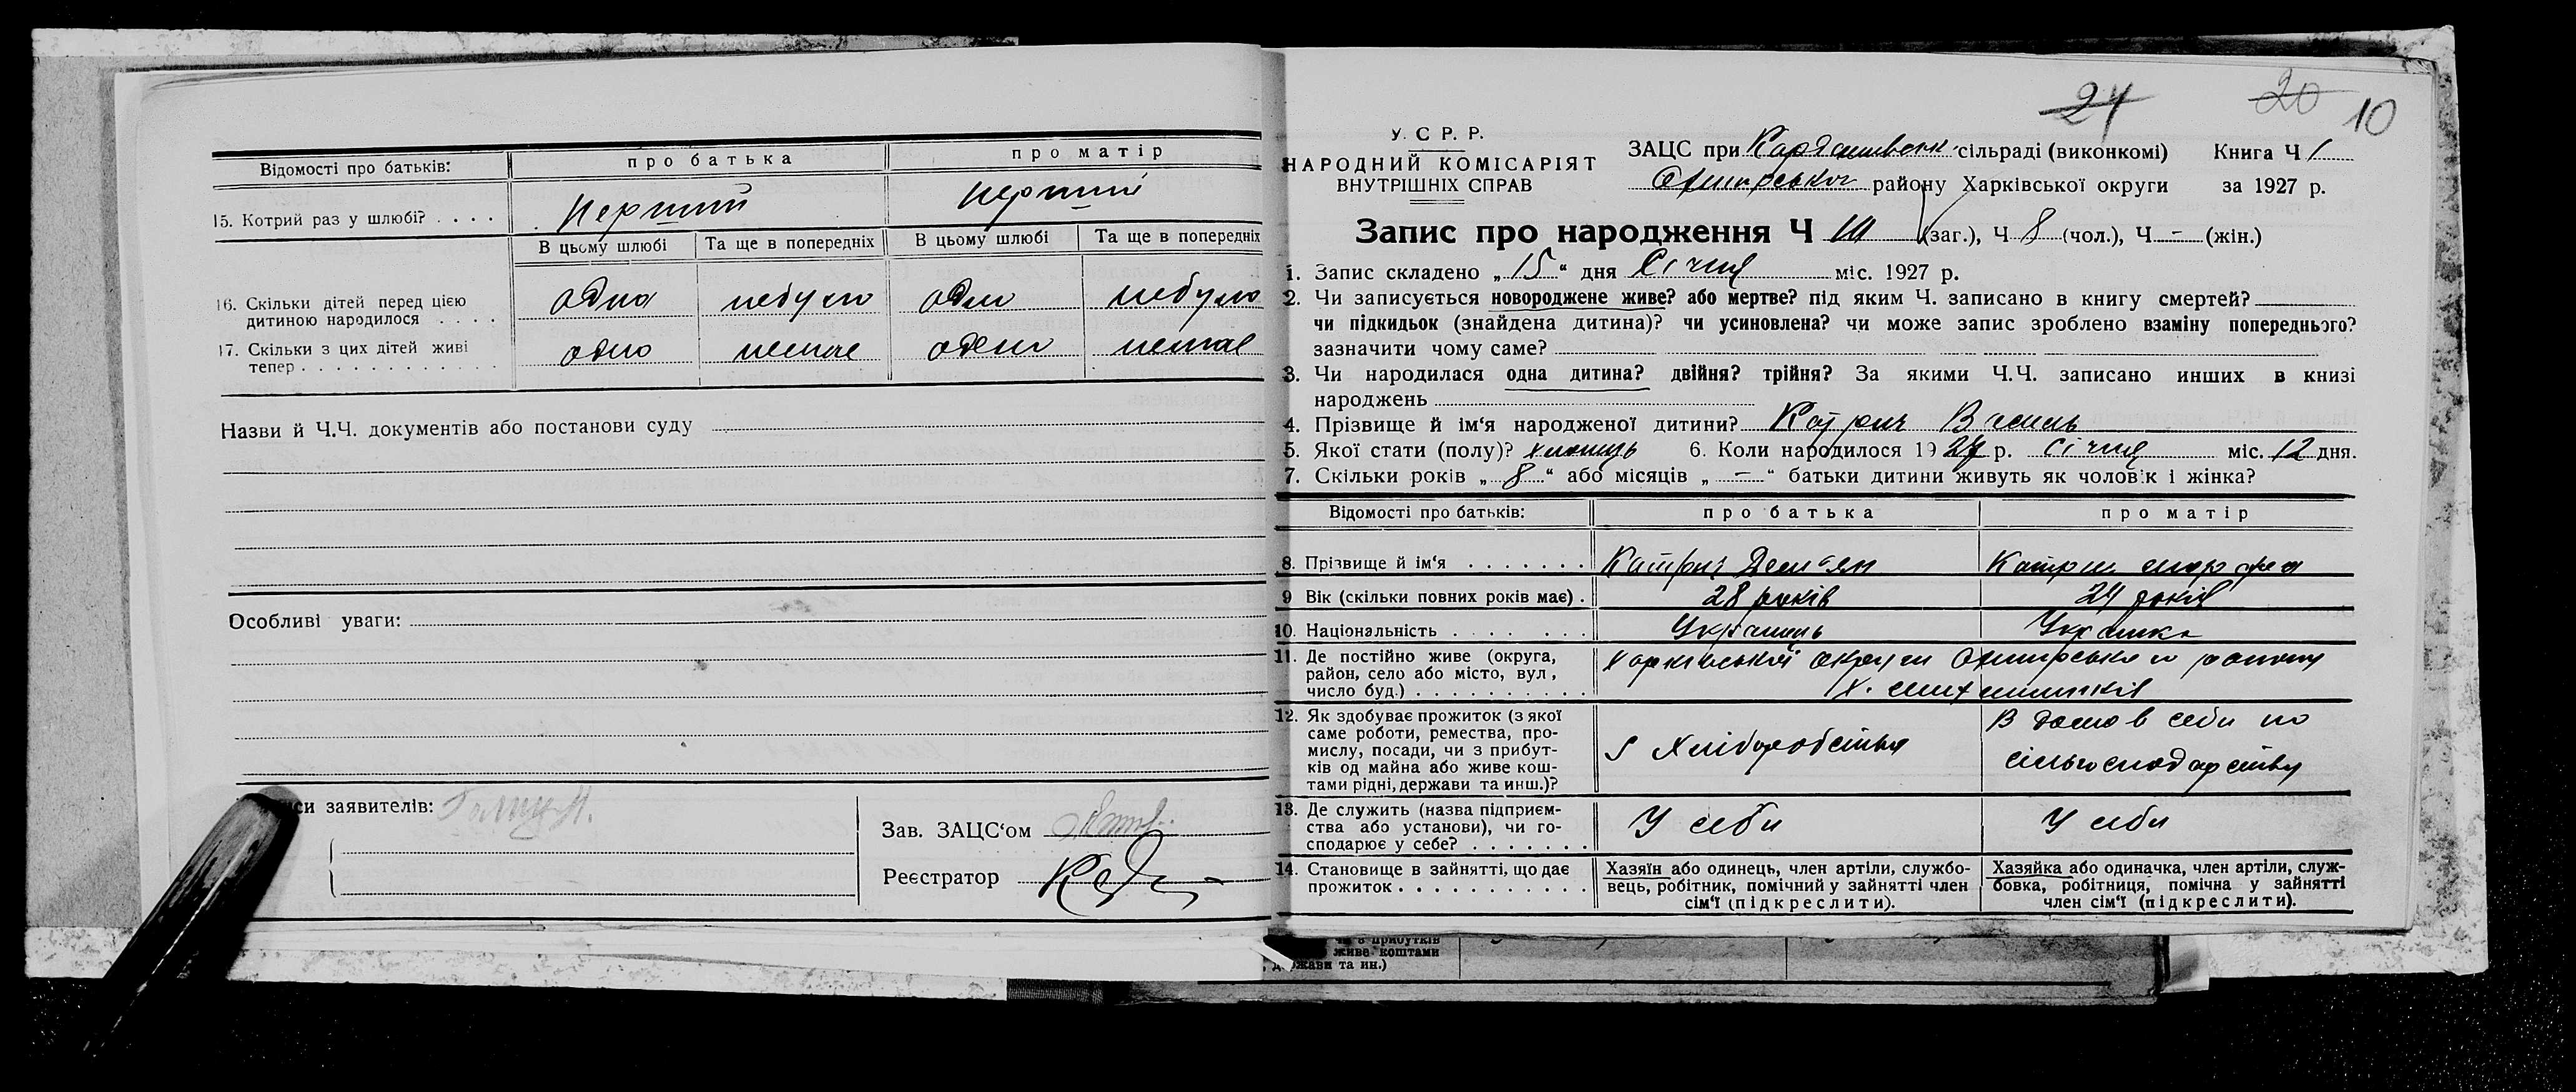 Відомості про батьків: про батька про матір
15. Котрий раз у шлюбі? . . . . перший перший
В цьому шлюбі Та ще в попередніх В цьому шлюбі Та ще в попередніх
16. Скільки дітей перед цією
дитиною народилося . . . . одна небуло одно небуло
17. Скільки з цих дітей живі
тепер . . . . . . . . . . . . одно немає одно немає
Назви й Ч.Ч. документів або постанови суду
Особливі уваги:
си заявителів:
Зав. ЗАЦС‘ом
Реєстратор
24 20 10
У. С Р. Р.
НАРОДНИЙ КОМІСАРІЯТ
ВНУТРІШНІХ СПРАВ
ЗАЦС при сільраді (виконкомі) Книга Ч 1
району Харківської округи за 1927 р.
Запис про народження Ч (заг.), Ч 8 (чол.), Ч - (жін.)
1. Запис складено „15“ дня Січня міс. 1927 р.
2. Чи записується новороджене живе? або мертве? під яким Ч. записано в книгу смертей?
чи підкидьок (знайдена дитина)? чи усиновлена? чи може запис зроблено взаміну попереднього?
зазначити чому саме?
3. Чи народилася одна дитина? двійня? трійня? За якими Ч.Ч. записано инших в книзі
народжень
4. Прізвище й ім‘я народженої дитини? Катрич Василь
5. Якої стати (полу)? хлопець 6. Коли народилося 1927 р. Січня міс. 12 дня.
7. Скільки років „8“ або місяців „-“ батьки дитини живуть як чоловік і жінка?
Відомості про батьків: про батька про матір
8. Прізвище й ім‘я . . . . . . . Катрич Дем‘ян Катрич
9 Вік (скільки повних років має) . 28 років 24 років
10. Національність . . . . . . . Українець Українка
11. Де постійно живе (округа,
район, село або місто, вул,
число буд.) . . . . . . . . . . Харківської округи району
12. Як здобуває прожиток (з якої
саме роботи, ремества, про-
мислу, посади, чи з прибут-
ків од майна або живе кош-
тами рідні, держави та инш.)?
Хліборобства
В дома в себи по
13. Де служить (назва підприєм-
ства або установи), чи го-
сподарює у себе? . . . . . . . У себи У себи
14. Становище в зайнятті, що дає
прожиток . . . . . . . . . . .
Хазяїн або одинець, член артіли, службо-
вець, робітник, помічний у зайнятті член
сім‘ї (підкреслити).
Хазяйка або одиначка, член артіли, служ-
бовка, робітниця, помічна у зайнятті
член сім‘ї (підкреслити).
чи з прибутків
живе коштами
жави та ин.)